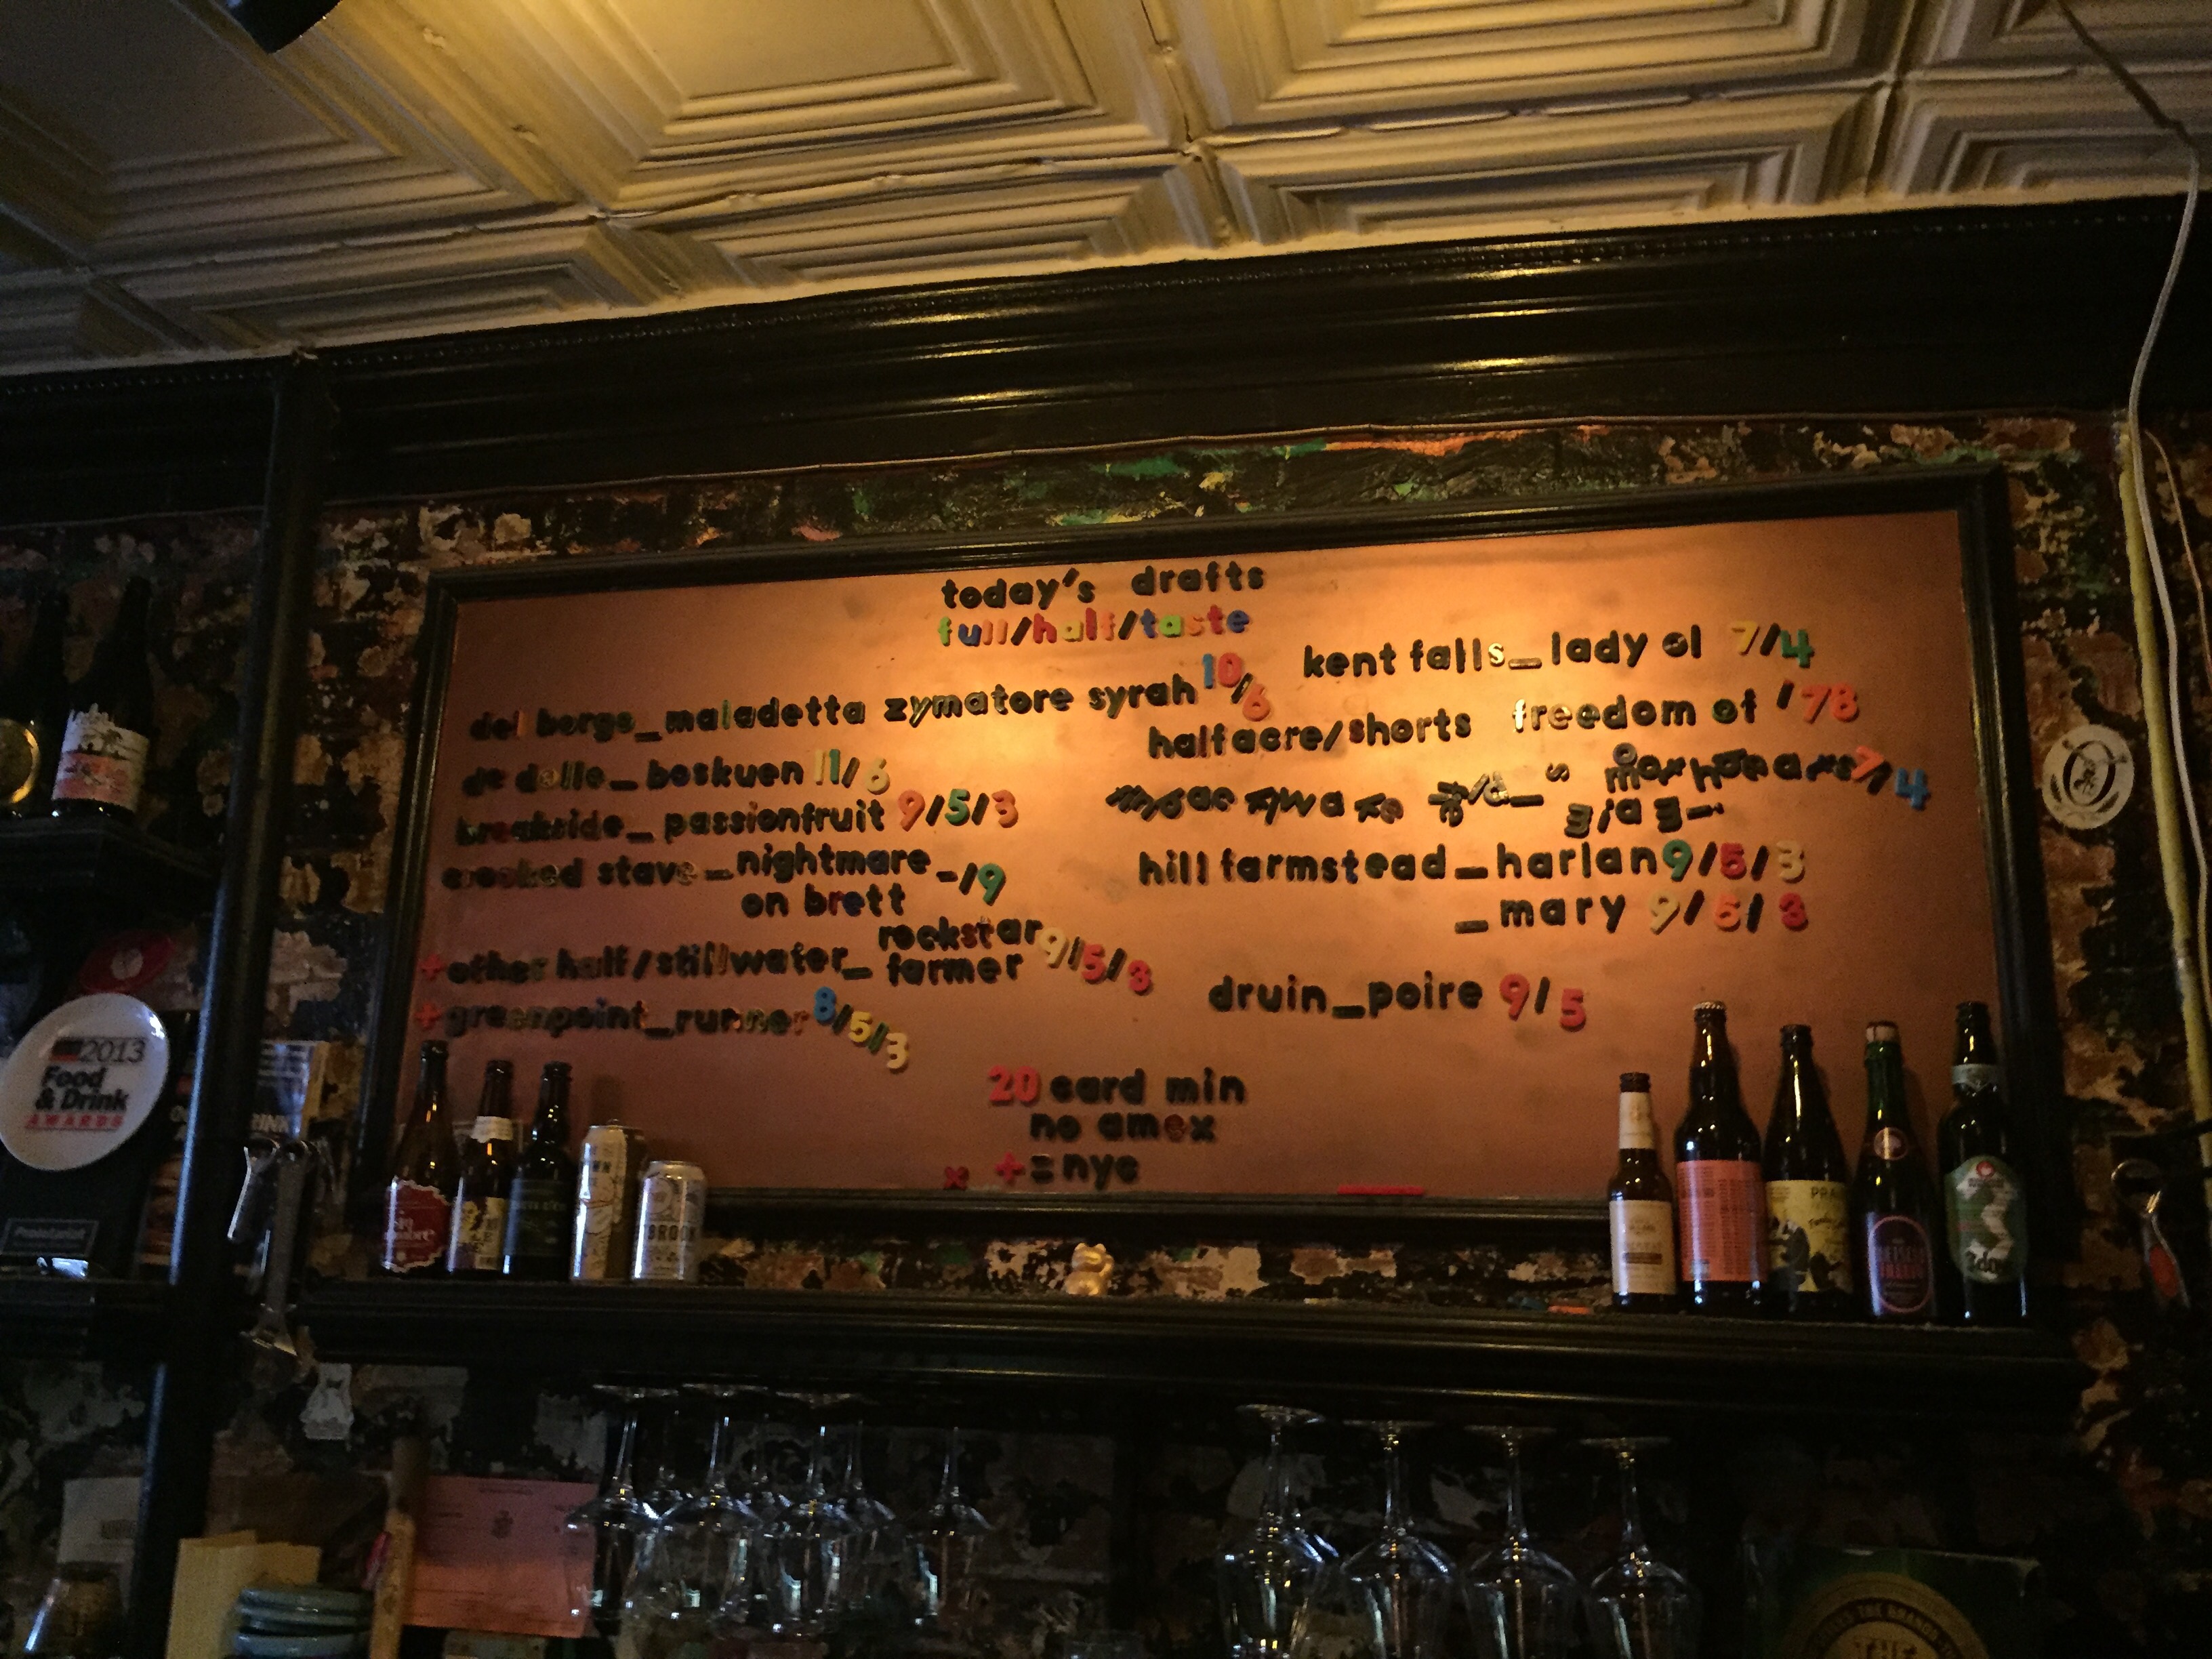 today's drafts
full/half/taste
del borgo_maladetta zymatore syrah 10/6
de dolle_boskuen 11/6
breakside_passionfruit 9/5/3
crooked stave_nightmare on brett -/9
+other half/stillwater_rockstar farmer 9/5/3
+greenpoint_runner 8/5/3
kent falls_lady ol 7/4
halfacre/shorts freedom of '78
7/4
hill farmstead_harlan 9/5/3
_mary 9/5/3
druin_poire 9/5
20 card min
no amex
x +=nyc
2013
Food
& Drink
AWARDS